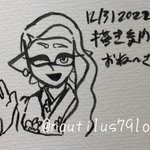 12/31 2022
描き納め
おね〜さ
@nautilus79lo